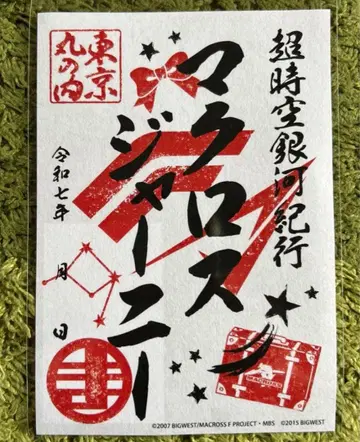 超時空銀河紀行
マクロス
ジャーニー
東京
丸の内
令和七年 月 日
MACROSS
©2007 BIGWEST/MACROSS F PROJECT・MBS ©2015 BIGWEST